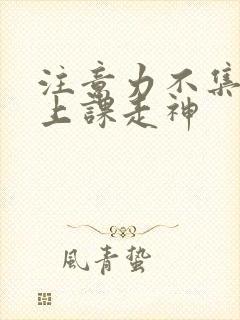 注意力不集
上課走神
風青蟄